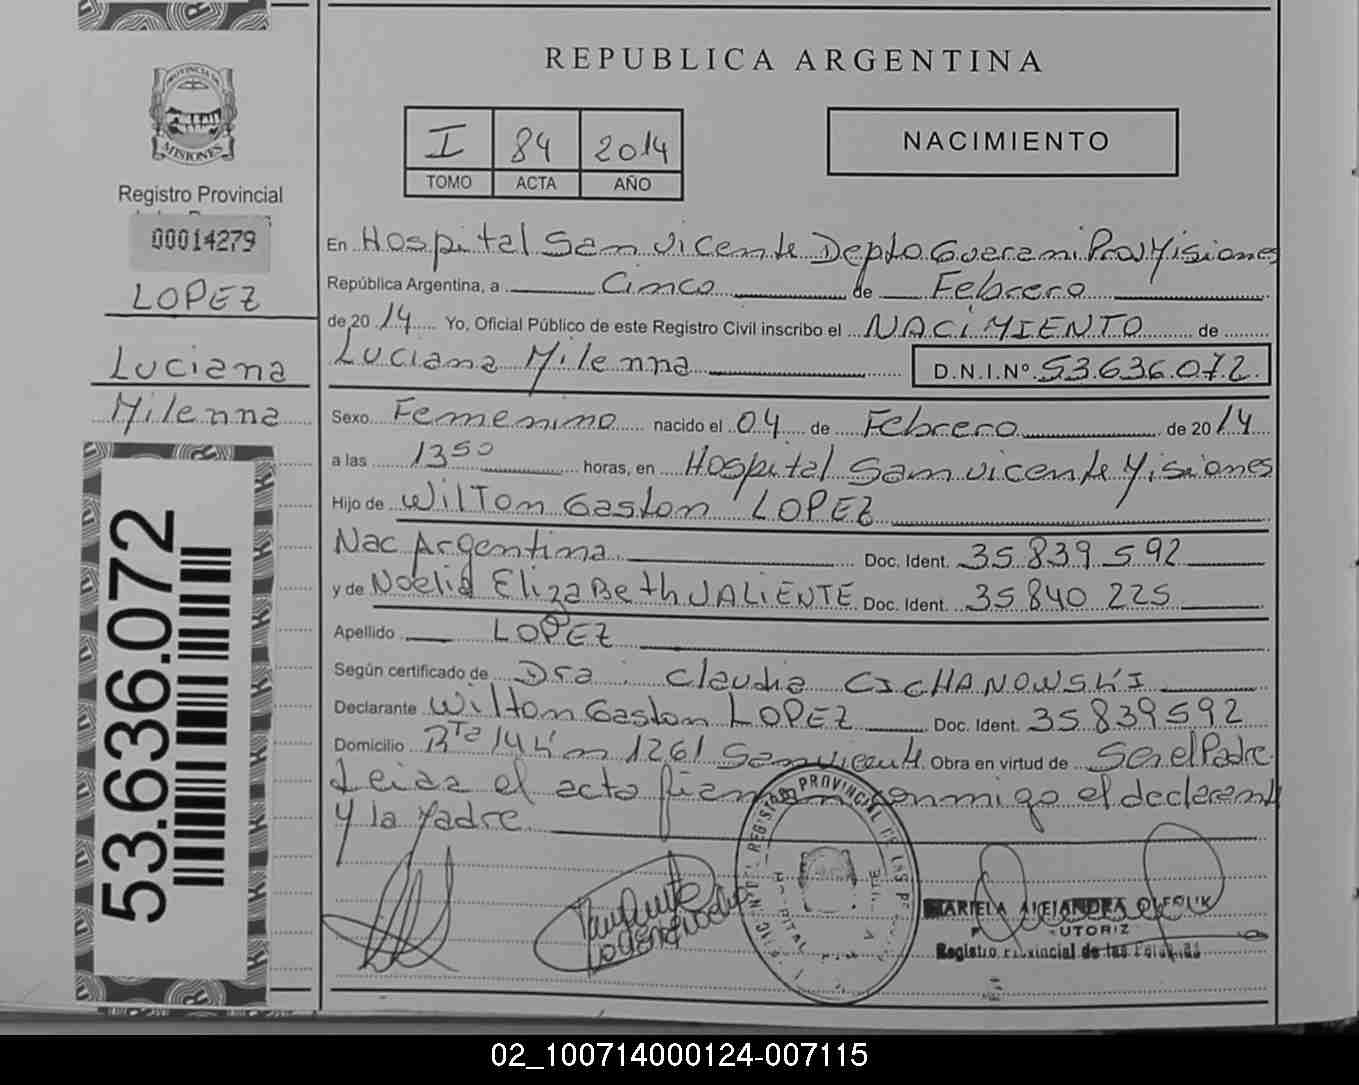 REPUBLICA ARGENTINA
PROVINCIA DE
MISIONES
Registro Provincial
00014279
LOPEZ
Luciana
Milenna
53.636.072
I 84 2014
TOMO ACTA AÑO
NACIMIENTO
En Hospital San vicente Depto Guarani Prov Misiones
República Argentina, a Cinco de Febrero
de 20 14 Yo, Oficial Público de este Registro Civil inscribo el NACIMIENTO de
Luciana Milenna D.N.I.Nº 53.636.072
Sexo Femenino nacido el 04 de Febrero de 20 14
a las 13 50 horas, en Hospital San vicente Misiones
Hijo de Wilton Gaston LOPEZ
Nac Argentina Doc. Ident. 35.839.592
y de Noelia ElizaBeth VALIENTE Doc. Ident. 35 840 225
Apellido LOPEZ
Según certificado de Dra. Claudia CICHANOWSKI
Declarante Wilton Gaston LOPEZ Doc. Ident. 35839592
Domicilio Rta 14 km 1261 San vicente Obra en virtud de Ser el Padre
Leida el acta firman conmigo el declarante
y la Madre
REGISTRO PROVINCIAL DE LAS
MARIELA ALEJANDRA
Registro Provincial de las Personas
02_100714000124-007115